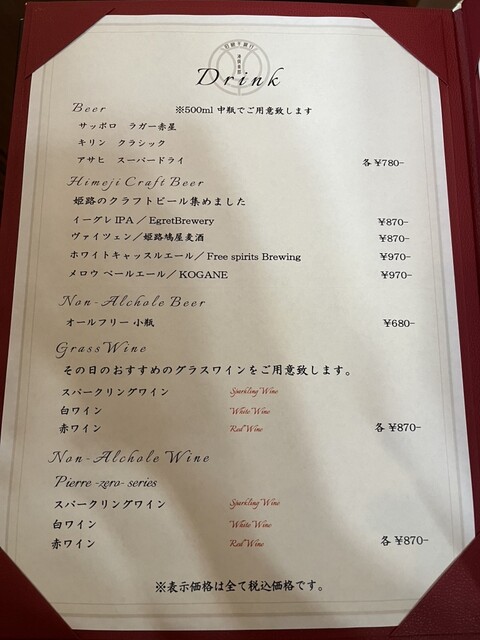 Drink
Beer ※500ml 中瓶でご用意致します
サッポロ ラガー赤星
キリン クラシック
アサヒ スーパードライ 各￥780-
Himeji Craft Beer
姫路のクラフトビール集めました
イーグレIPA／EgretBrewery ￥870-
ヴァイツェン／姫路鳩屋麦酒 ￥870-
ホワイトキャッスルエール／Free spirits Brewing ￥970-
メロウ ペールエール／KOGANE ￥970-
Non-Alchole Beer
オールフリー 小瓶 ￥680-
Grass Wine
その日のおすすめのグラスワインをご用意致します。
スパークリングワイン Sparkling Wine
白ワイン White Wine
赤ワイン Red Wine 各￥870-
Non-Alchole Wine
Pierre -zero- series
スパークリングワイン Sparkling Wine
白ワイン White Wine
赤ワイン Red Wine 各￥870-
※表示価格は全て税込価格です。